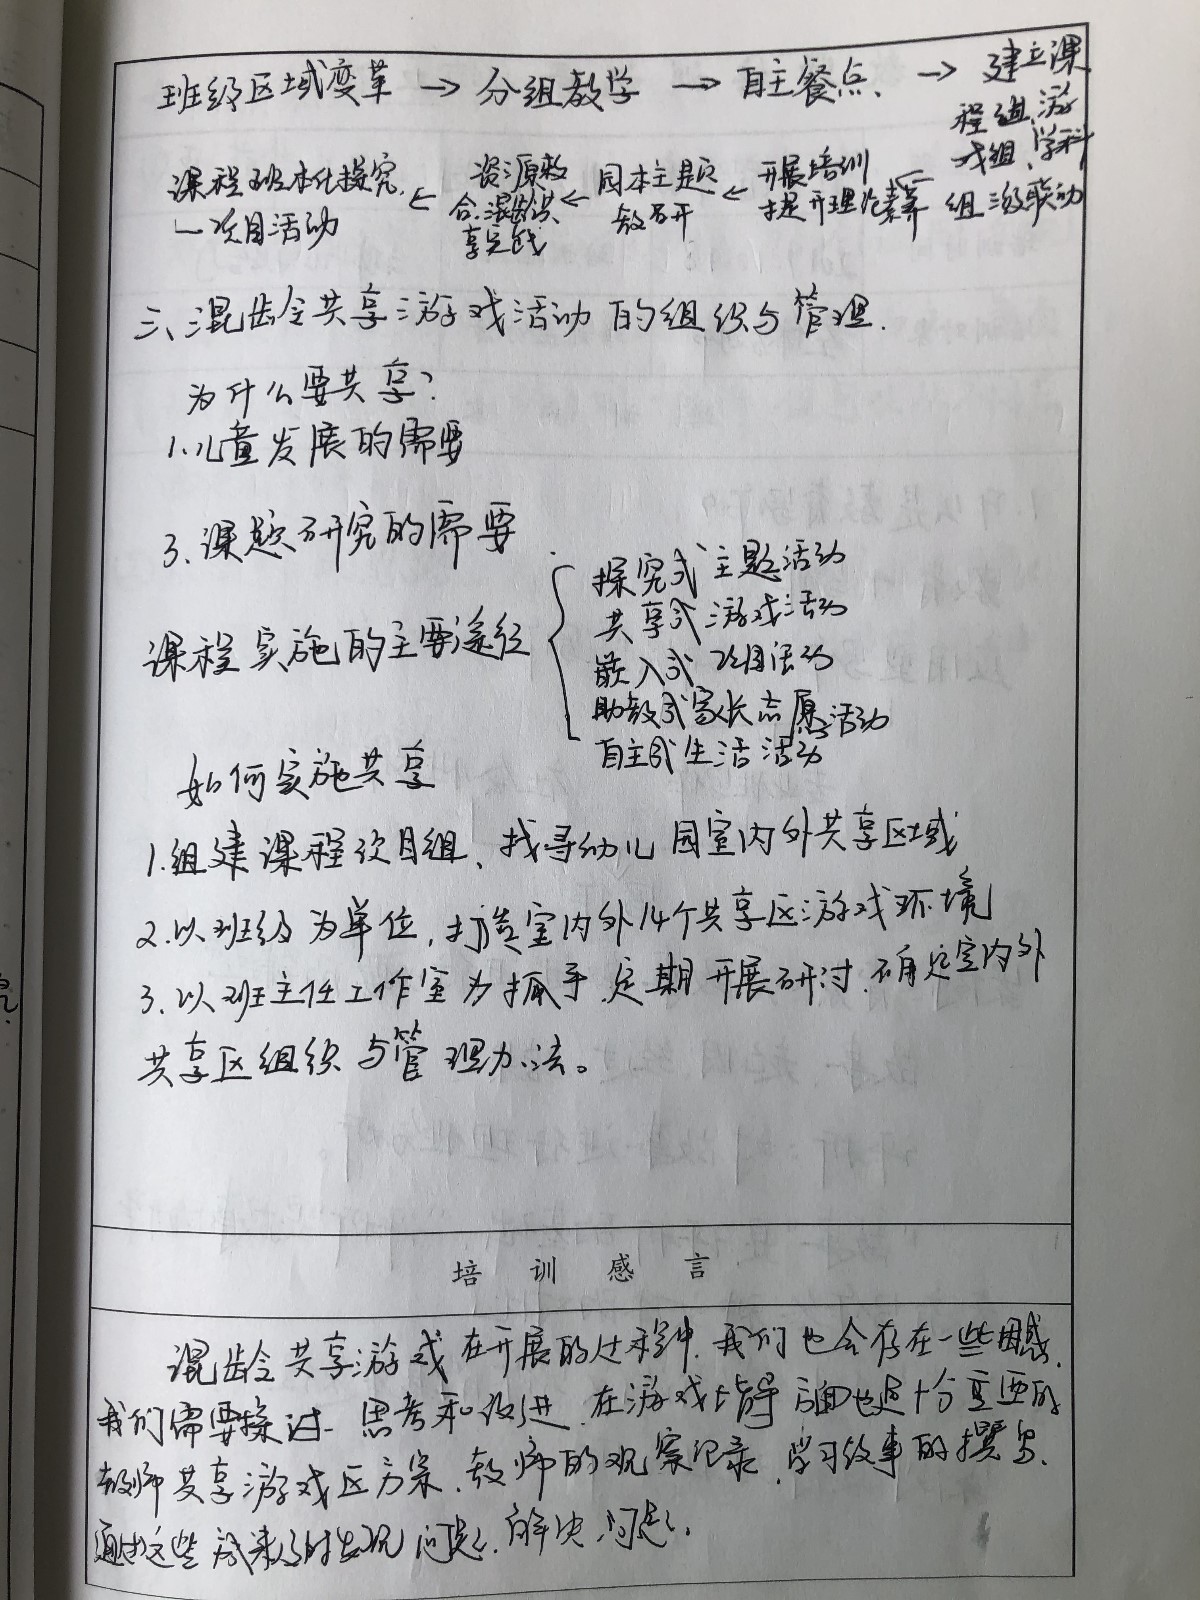 班级区域变革 → 分组教学 → 自主餐点、 → 建立课
程组、游
戏组、学科
组级联动
← 开展培训
提升理论素养
← 园本主题
教研
← 资源整
合、混龄共
享定线
← 课程班本化探究,
一项目活动
三、混龄共享游戏活动的组织与管理.
为什么要共享?
1.儿童发展的需要
3.课题研究的需要
课程实施的主要途径
探究式主题活动
共享式游戏活动
嵌入式项目活动
助教式家长志愿活动
自主式生活活动
如何实施共享
1.组建课程项目组、找寻幼儿园室内外共享区域
2.以班级为单位,打造室内外14个共享区游戏环境
3.以班主任工作室为抓手.定期开展研讨.确定室内外
共享区组织与管理办法。
培训感言
混龄共享游戏在开展的过程中,我们也会存在一些困惑.
我们需要探讨、思考和改进.在游戏指导方面也是十分重要的
教师共享游戏区方案.教师的观察记录.学习故事的撰写.
通过这些 来及时发现问题、解决问题.